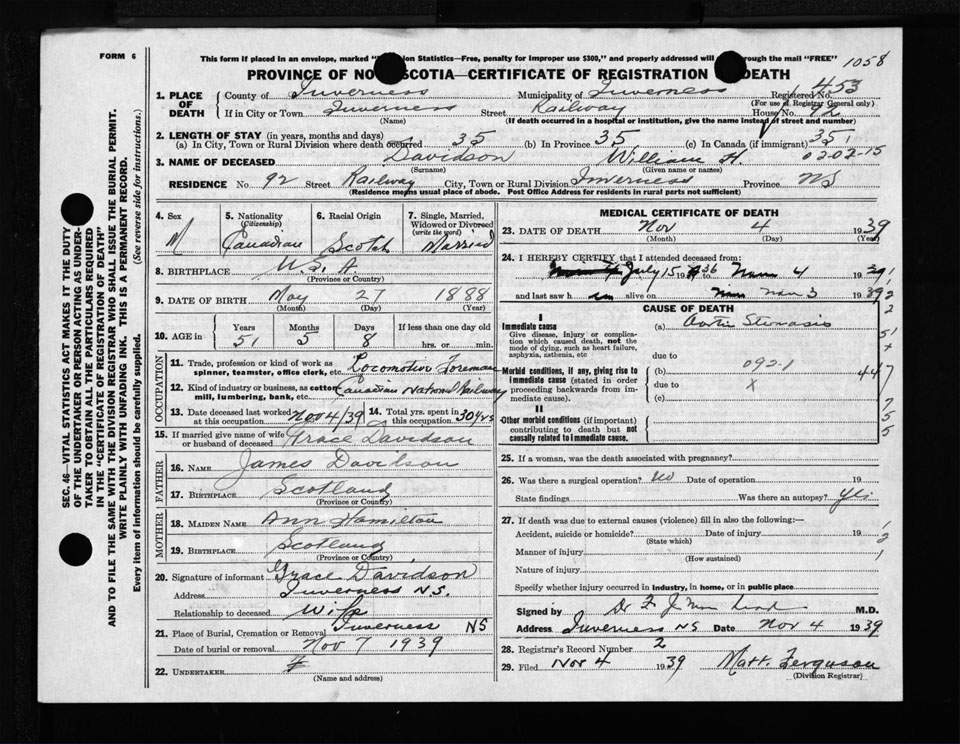 FORM 6
This form if placed in an envelope, marked "    ion Statistics—Free, penalty for improper use $300," and properly addressed will     rough the mail "FREE"
1058
PROVINCE OF NO   SCOTIA—CERTIFICATE OF REGISTRATION    DEATH
1. PLACE OF DEATH
County of Inverness Municipality of Inverness Registered No. 453
(For use of Registrar General only)
If in City or Town Inverness Street Railway House No. 92
(Name) (If death occurred in a hospital or institution, give the name instead of street and number)
2. LENGTH OF STAY (in years, months and days)
(a) In City, Town or Rural Division where death occurred 35 (b) In Province 35 (c) In Canada (if immigrant) 35
3. NAME OF DECEASED Davidson William H. 02-02-15
(Surname) (Given name or names)
RESIDENCE No. 92 Street Railway City, Town or Rural Division Inverness Province NS
(Residence means usual place of abode. Post Office Address for residents in rural parts not sufficient)
SEC. 46—VITAL STATISTICS ACT MAKES IT THE DUTY
OF THE UNDERTAKER OR PERSON ACTING AS UNDER-
TAKER TO OBTAIN ALL THE PARTICULARS REQUIRED
IN THE "CERTIFICATE OF REGISTRATION OF DEATH"
AND TO FILE THE SAME WITH THE DIVISION REGISTRAR WHO SHALL ISSUE THE BURIAL PERMIT.
WRITE PLAINLY WITH UNFADING INK. THIS IS A PERMANENT RECORD.
Every item of information should be carefully supplied. (See reverse side for instructions.)
4. Sex M
5. Nationality (Citizenship) Canadian
6. Racial Origin Scotch
7. Single, Married, Widowed or Divorced (write the word) Married
8. BIRTHPLACE U.S.A.
(Province or Country)
9. DATE OF BIRTH May 27 1888
(Month) (Day) (Year)
10. AGE in Years 51 Months 5 Days 8 If less than one day old hrs. or min.
OCCUPATION
11. Trade, profession or kind of work as spinner, teamster, office clerk, etc. Locomotive Foreman
12. Kind of industry or business, as cotton mill, lumbering, bank, etc. Canadian National Railway
13. Date deceased last worked at this occupation Nov 4/39
14. Total yrs. spent in this occupation 30 yrs
15. If married give name of wife or husband of deceased Grace Davidson
FATHER
16. NAME James Davidson
17. BIRTHPLACE Scotland
(Province or Country)
MOTHER
18. MAIDEN NAME Ann Hamilton
19. BIRTHPLACE Scotland
(Province or Country)
20. Signature of informant Grace Davidson
Address Inverness N.S.
Relationship to deceased Wife
21. Place of Burial, Cremation or Removal Inverness NS
Date of burial or removal Nov 7 1939
22. UNDERTAKER
(Name and address)
MEDICAL CERTIFICATE OF DEATH
23. DATE OF DEATH Nov 4 1939
(Month) (Day) (Year)
24. I HEREBY CERTIFY that I attended deceased from:
July 15 1936 to Nov 4 1939
and last saw h im alive on Nov 3 1939
CAUSE OF DEATH
I
Immediate cause
Give disease, injury or complication which caused death, not the mode of dying, such as heart failure, asphyxia, asthenia, etc
(a) Aortic Stenosis
due to
Morbid conditions, if any, giving rise to immediate cause (stated in order proceeding backwards from immediate cause).
(b) 092-1
due to X
(c)
447
II
Other morbid conditions (if important) contributing to death but not causally related to immediate cause.
25. If a woman, was the death associated with pregnancy?
26. Was there a surgical operation? No Date of operation 19
State findings Was there an autopsy? Yes
27. If death was due to external causes (violence) fill in also the following:—
Accident, suicide or homicide? Date of injury 19
(State which)
Manner of injury
(How sustained)
Nature of injury
Specify whether injury occurred in industry, in home, or in public place
Signed by Dr M.D.
Address Inverness NS Date Nov 4 1939
28. Registrar's Record Number 2
29. Filed Nov 4 1939 Matt. Ferguson
(Division Registrar)